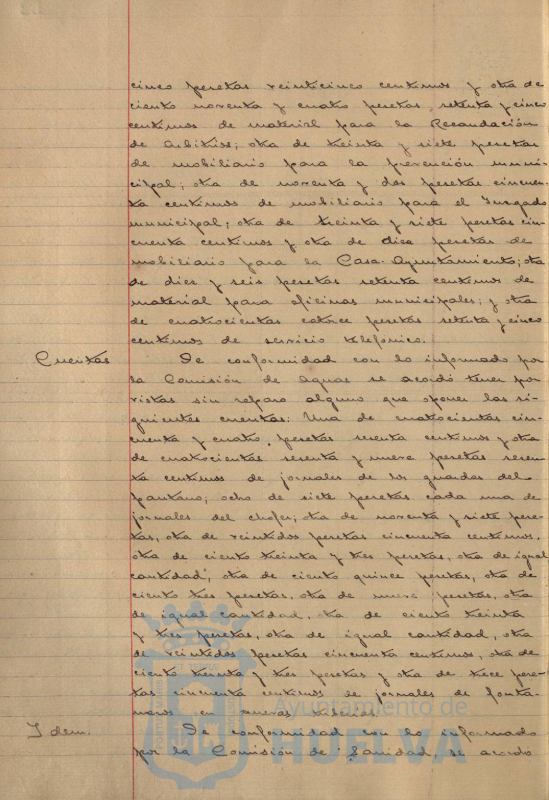 cinco pesetas veinticinco centimos y otra de
ciento noventa y cuatro pesetas setenta y cinco
centimos de material para la Recaudación
de Arbitrios; otra de treinta y siete pesetas
de mobiliario para la prevención muni-
cipal; otra de noventa y dos pesetas cincuen-
ta centimos de mobiliario para el Juzgado
municipal; otra de treinta y siete pesetas cin-
cuenta centimos y otra de diez pesetas de
mobiliario para la Casa-Ayuntamiento; otra
de diez y seis pesetas setenta centimos de
material para oficinas municipales; y otra
de cuatrocientas catorce pesetas setenta y cinco
centimos de servicio telefonico.
Cuentas De conformidad con lo informado por
la Comisión de Aguas se acordó tener por
vistas sin reparo alguno que oponer las si-
guientes cuentas: Una de cuatrocientas cin-
cuenta y cuatro pesetas sesenta centimos y otra
de cuatrocientas sesenta y nueve pesetas sesen-
ta centimos de jornales de los guardas del
pantano; ocho de siete pesetas cada una de
jornales del chofer; otra de noventa y siete pese-
tas, otra de veintidos pesetas cincuenta centimos,
otra de ciento treinta y tres pesetas, otra de igual
cantidad, otra de ciento quince pesetas, otra de
ciento tres pesetas, otra de nueve pesetas, otra
de igual cantidad, otra de ciento treinta
y tres pesetas, otra de igual cantidad, otra
de veintidos pesetas cincuenta centimos, otra de
ciento treinta y tres pesetas y otra de trece pese-
tas cincuenta centimos de jornales de fonta-
neros en nuevas tuberias.
Idem. De conformidad con lo informado
por la Comisión de Sanidad, se acordó
Ayuntamiento de
HUELVA